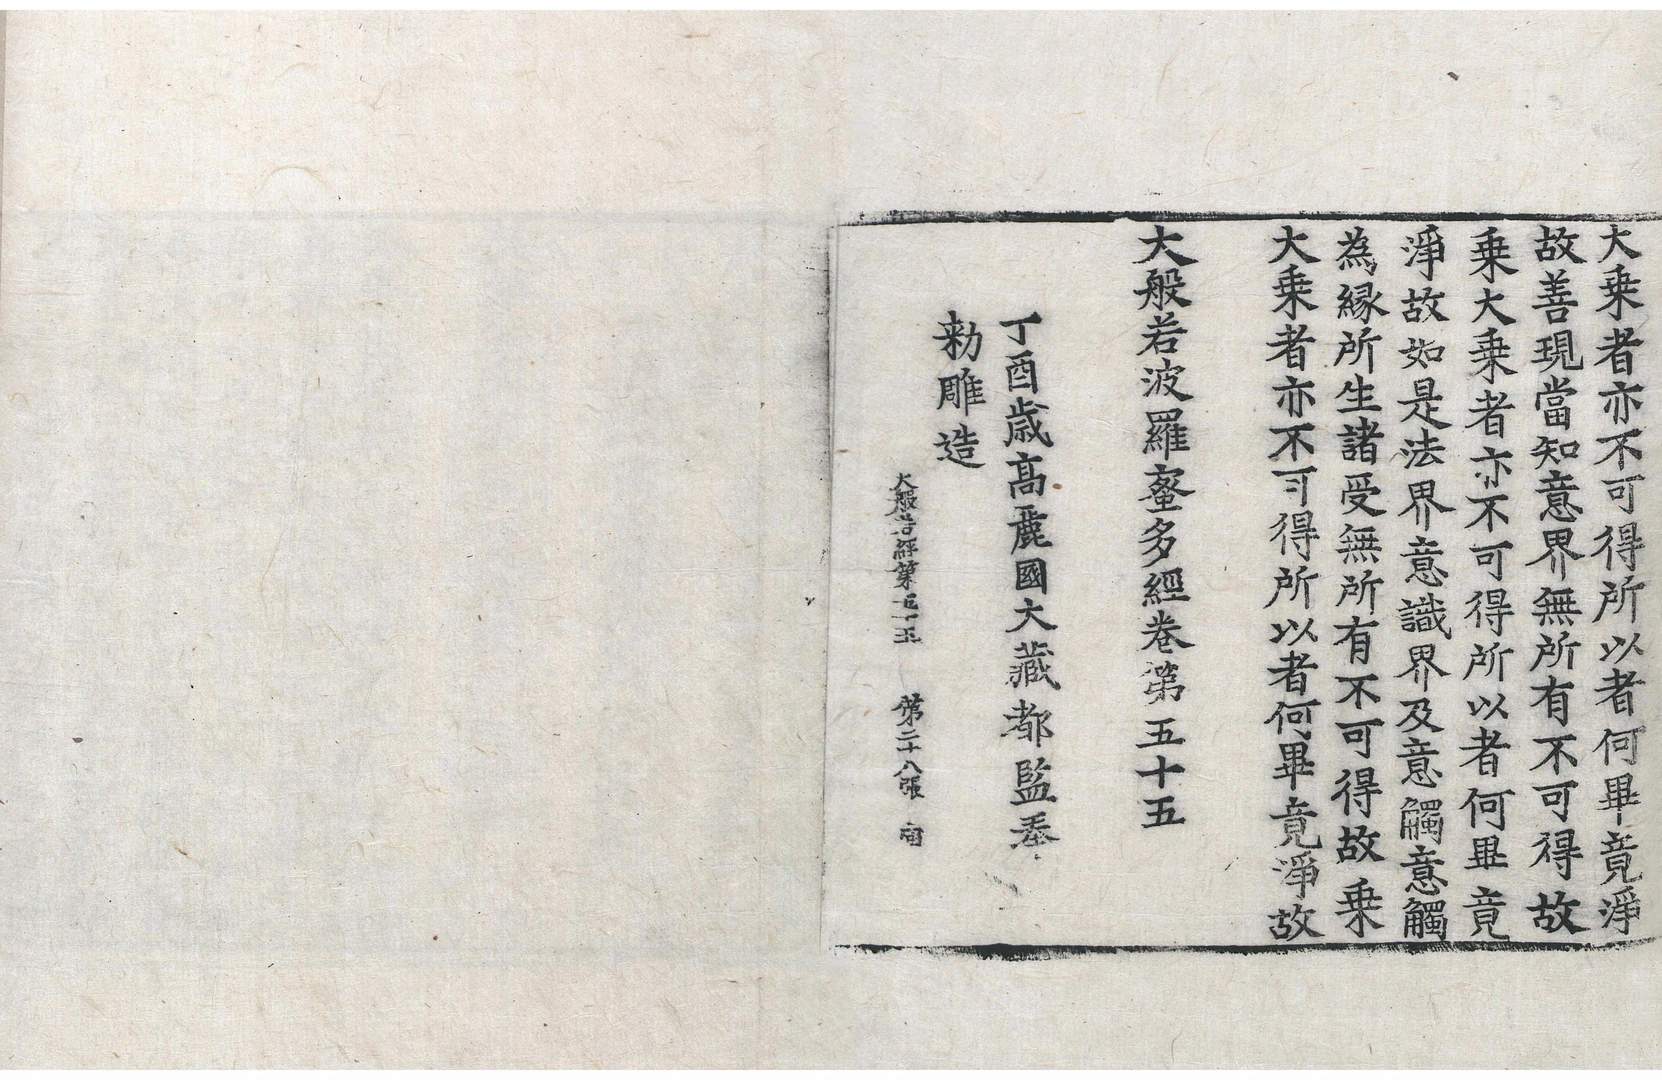 大乗者亦不可得所以者何畢竟淨
故善現當知意界無所有不可得故
乗大乗者亦不可得所以者何畢竟
淨故如是法界意識界及意觸意觸
為縁所生諸受無所有不可得故乗
大乗者亦不可得所以者何畢竟淨故
大般若波羅蜜多經卷第五十五
丁酉歳高麗國大藏都監奉
勑雕造
大般若經第五十五 第二十八張 宙